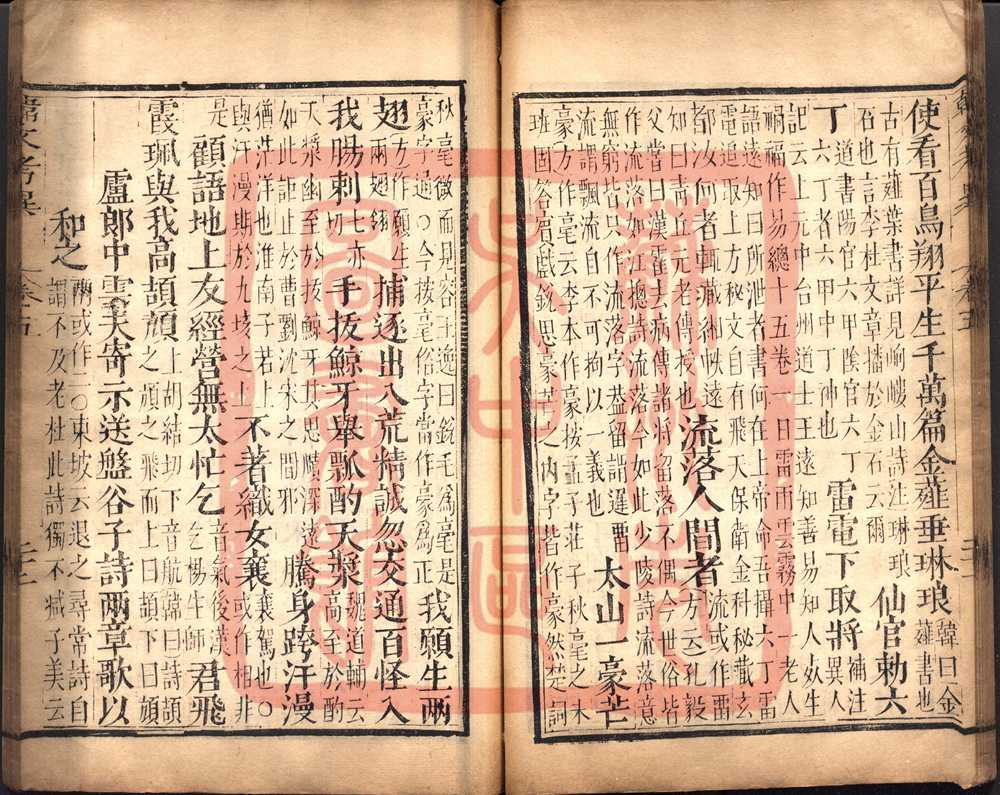 使看百鳥翔平生千萬篇金薤垂琳琅
韓曰金
薤書也
古有薤葉書詳見岣嶁山詩注琳琅
石也言李杜文章播於金石云爾
仙官勅六
丁
道書陽官六甲陰官六丁
六丁者六甲中丁神也
雷電下取將
補注
異人
記云上元中台州道士王遠知善易知人妖生
禍福作易總十五卷一日雷雨雲霧中一老人
語遠知曰所泄者書何在上帝命吾攝六丁雷
電追取上方秘文自有飛天保衛金科秘藏玄
都汝何者輒藏緗帙遠
知曰青丘元老傳授也
流落人間者
流或作畱
方云孔毅
父嘗曰漢霍去病傳諸將留落不偶今世俗皆
作流落如江總詩流落今如此少陵詩流落意
無窮皆只作流落字葢留謂遲畱
流謂飄流自不可拘以一義也
太山一豪芒
豪方作毫云李本作豪按孟子莊子秋豪之末
班固答賓戲銳思豪芒之内字皆作豪然楚詞
秋毫微而見容王逸曰銳毛爲毫是
豪字通○今按毫俗字當作豪爲正
我願生兩
翅
方作願生
兩翅翎
捕逐出入荒精誠忽交通百怪入
我腸刺
七亦
切
手拔鯨牙舉瓢酌天漿
魏道輔云
高至於酌
天漿幽至於拔鯨牙其思賾深遠
如此詎止於曹劉沈宋之間邪
騰身跨汗漫
猶茫洋也淮南子若士
與汗漫期於九垓之上
不著織女襄
襄駕也○
或作相非
是
顧語地上友經營無太忙乞
乞惕生師
音氣後漢
君飛
霞珮與我高頡頏
上胡結切下音航韓曰詩頡
之頏之飛而上曰頡下曰頏
盧郎中雲夫寄示送盤谷子詩兩章歌以
和之
兩或作二○東坡云退之尋常詩自
謂不及老杜此詩獨不減子美云
韓文考異